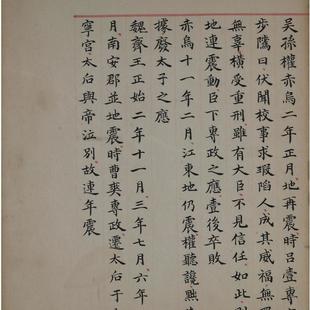 吴孫權赤烏二年正月地再震時吕壹專
步隲曰伏聞校事求瑕陷人成其威福無
無辜横受重刑雖有大臣不見信任如此
地連震動臣下專政之應壹後卒敗
赤烏十一年二月江東地仍震權聽讒黜
據廢太子之應
魏齊王正始二年十一月三年七月六年
月南安郡並地震時曹爽專政遷太后于
寧宮太后與帝泣別故連年震